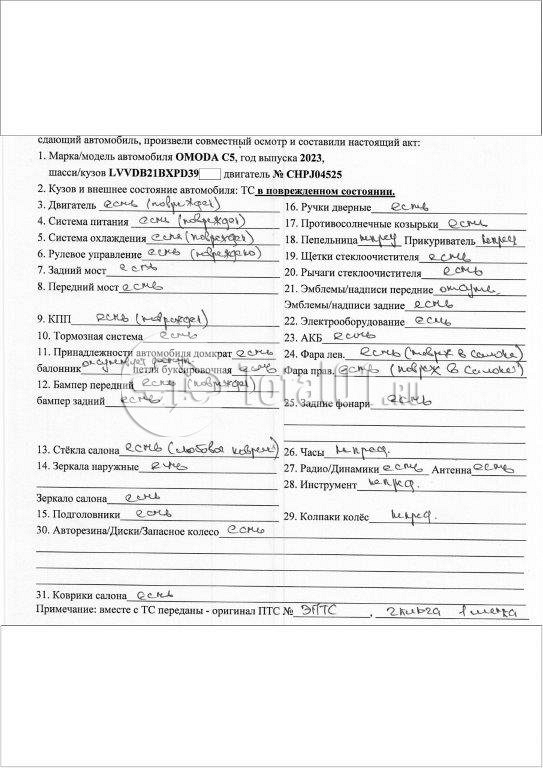 сдающий автомобиль, произвели совместный осмотр и составили настоящий акт:
1. Марка/модель автомобиля OMODA C5, год выпуска 2023,
шасси/кузов LVVDB21BXPD39 двигатель № CHPJ04525
2. Кузов и внешнее состояние автомобиля: ТС в поврежденном состоянии.
3. Двигатель есть (поврежд)
4. Система питания есть (поврежд)
5. Система охлаждения есть (поврежд)
6. Рулевое управление есть (поврежд)
7. Задний мост есть
8. Передний мост есть
9. КПП есть (поврежд)
10. Тормозная система есть
11. Принадлежности автомобиля домкрат есть
балонник петля буксировочная есть
12. Бампер передний есть (поврежд)
бампер задний есть
13. Стёкла салона есть (лобовое поврежд)
14. Зеркала наружные есть
Зеркало салона есть
15. Подголовники есть
30. Авторезина/Диски/Запасное колесо есть
31. Коврики салона есть
Примечание: вместе с ТС переданы - оригинал ПТС № ЭПТС, 2 ключа 1 метка
16. Ручки дверные есть
17. Противосолнечные козырьки есть
18. Пепельница непред Прикуриватель непред
19. Щетки стеклоочистителя есть
20. Рычаги стеклоочистителя есть
21. Эмблемы/надписи передние отсутс.
Эмблемы/надписи задние есть
22. Электрооборудование есть
23. АКБ есть
24. Фара лев. есть (поврежд в салоне)
Фара прав. есть (поврежд в салоне)
25. Задние фонари есть
26. Часы непред.
27. Радио/Динамики есть Антенна есть
28. Инструмент непред.
29. Колпаки колёс непред.
total01.ru